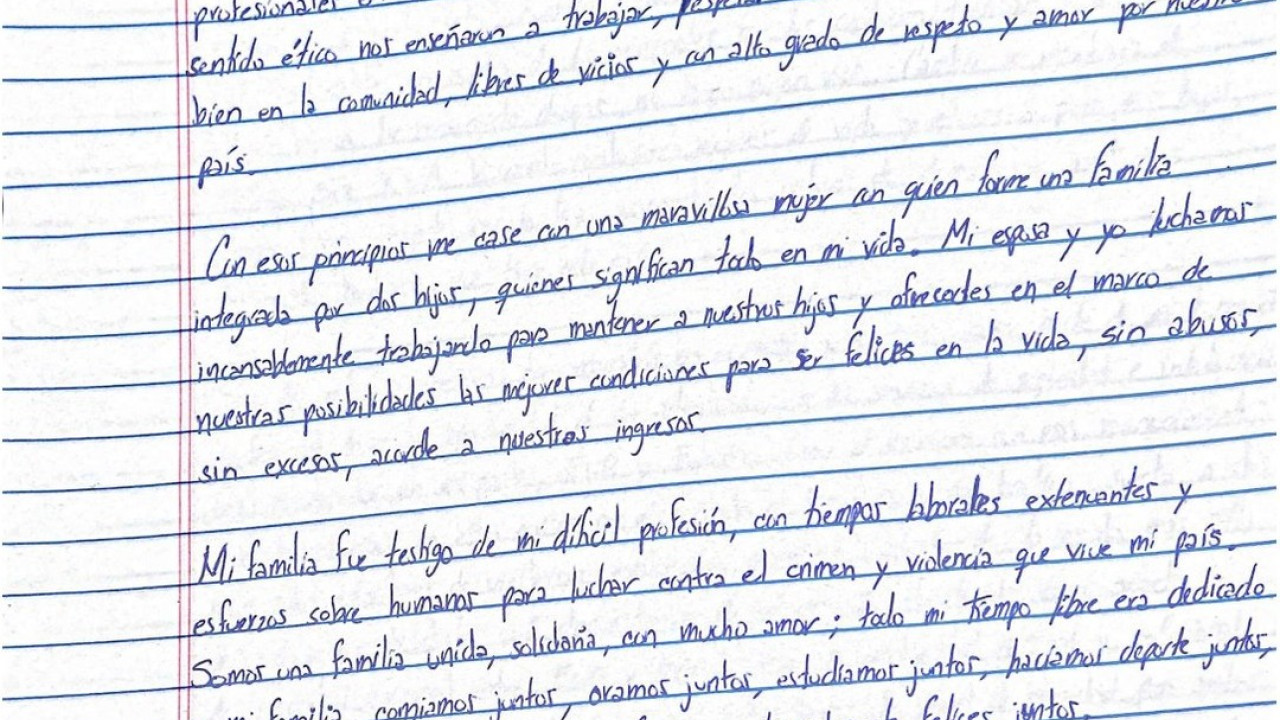 profesionales
sentido ético nos enseñaron a trabajar,
bien en la comunidad, libres de vicios y con alto grado de respeto y amor por nuestro
país.
Con esos principios me case con una maravillosa mujer con quien forme una familia
integrada por dos hijos, quienes significan todo en mi vida. Mi esposa y yo luchamos
incansablemente trabajando para mantener a nuestros hijos y ofrecerles en el marco de
nuestras posibilidades las mejores condiciones para ser felices en la vida, sin abusos,
sin excesos, acorde a nuestros ingresos.
Mi familia fue testigo de mi difícil profesión, con tiempos laborales extenuantes y
esfuerzos sobre humanos para luchar contra el crimen y violencia que vive mi país.
Somos una familia unida, solidaria, con mucho amor; todo mi tiempo libre era dedicado
mi familia, comíamos juntos, oramos juntos, estudiamos juntos, hacíamos deporte juntos,
felices juntos.